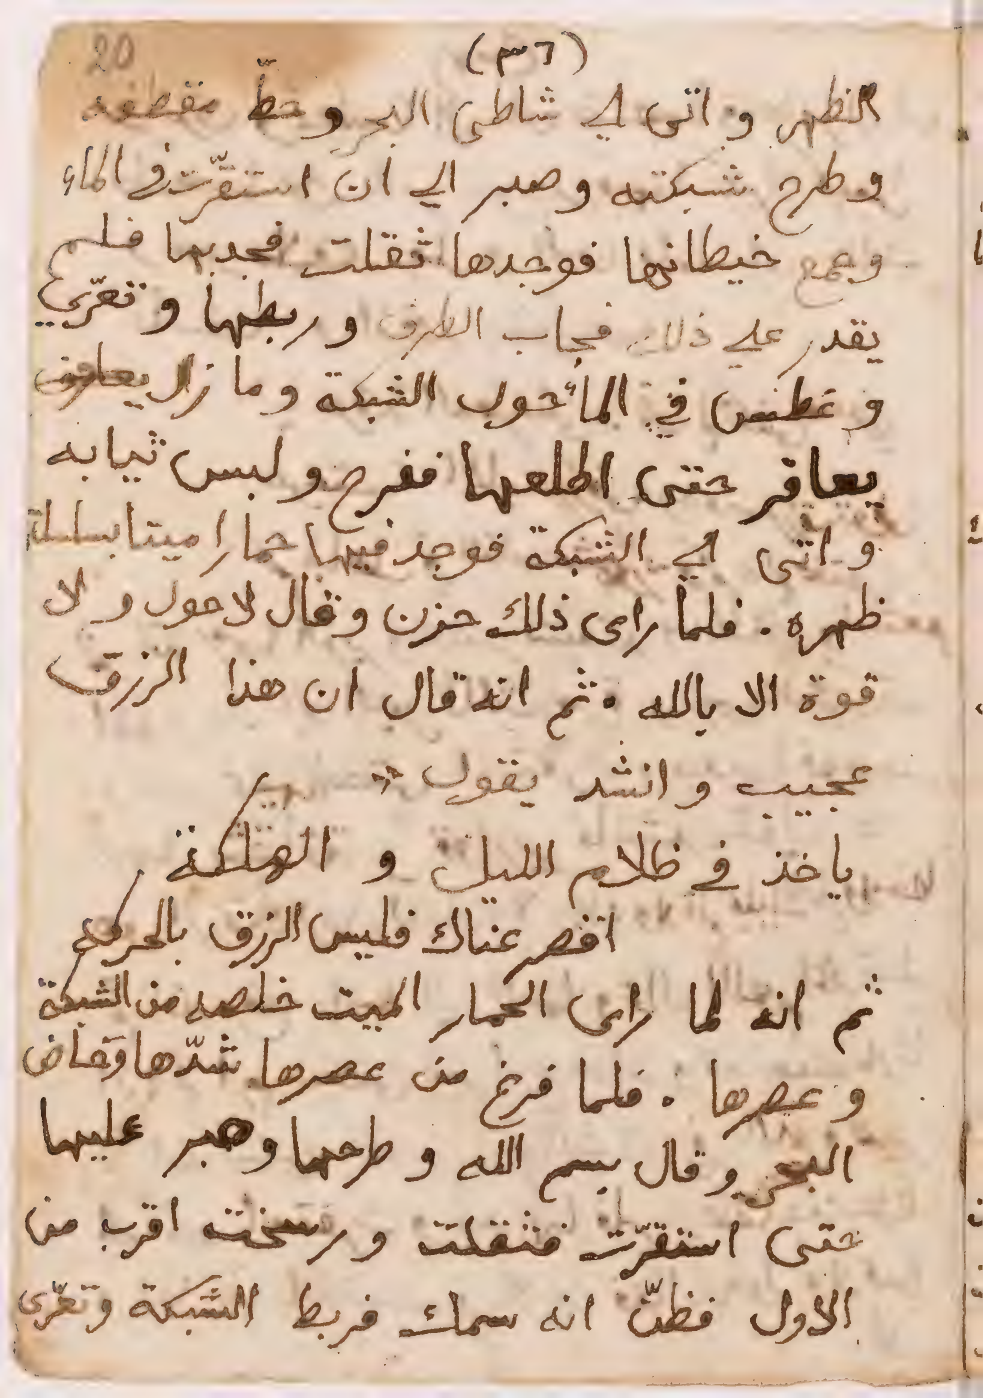 20
(٣٦)
الظهر و اتى الي شاطى البحر وحطّ مقطفه
وطرح شبكته وصبر الي ان استقرّت في الماء
وجمع خيطانها فوجدها ثقلت فجدبها فلم
يقدر علي ذلك فجاب الطرف وربطها وتعرّي
وغطس في المأ حول الشبكة وما زال
يعافر حتى اطلعها ففرح ولبس ثيابه
واتى الي الشبكة فوجد فيها حمارا ميتا بسلسلة
ظهره . فلما راى ذلك حزن وقال لا حول ولا
قوة الا بالله . ثم انه قال ان هذا الرزق
عجيب وانشد يقول
ياخذ في ظلام الليل و الهلكة
اقصر عناك فليس الرزق بالحركه
ثم انه لما راى الحمار الميت خلصه من الشبكة
وعصرها . فلما فرغ من عصرها شدّها وخاض
البحر وقال بسم الله وطرحها وصبر عليها
حتى استقرّت فثقلت ورسخت اقرب من
الاول فظنّ انه سمك فربط الشبكة وتعرّى